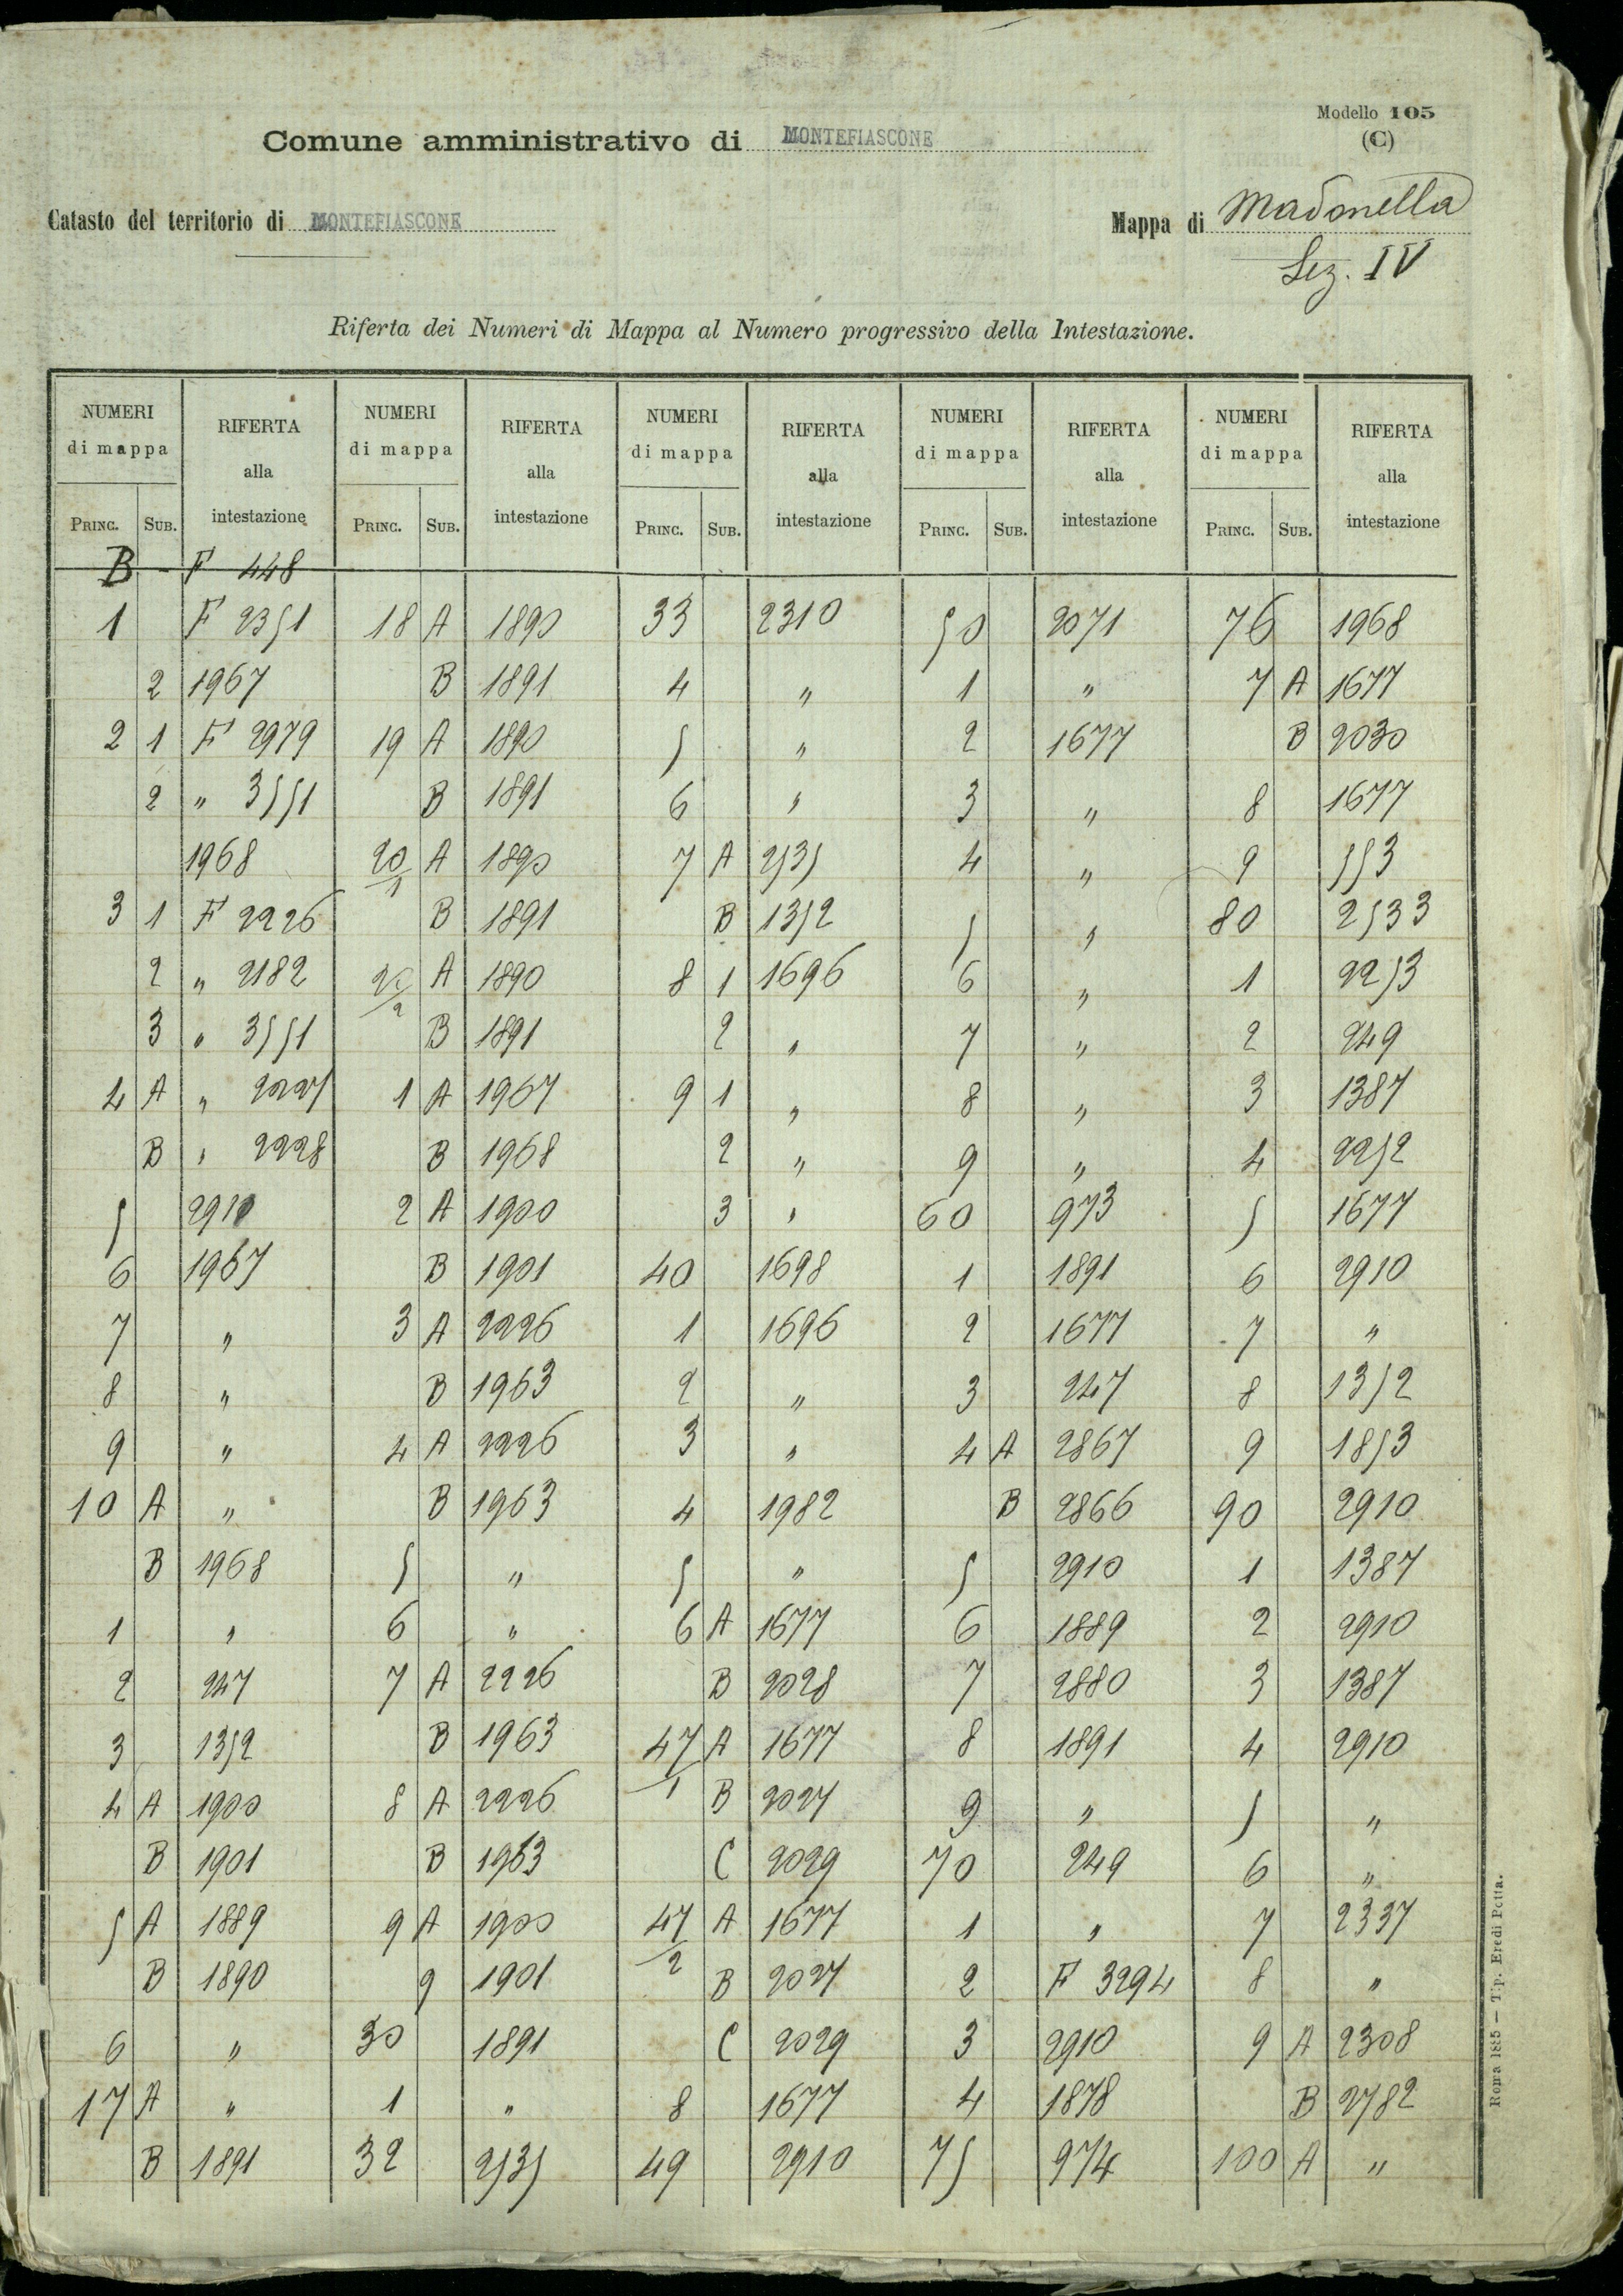 Modello 105
(C)
Comune amministrativo di MONTEFIASCONE
Catasto del territorio di MONTEFIASCONE Mappa di Madonella
Sez. IV
Riferta dei Numeri di Mappa al Numero progressivo della Intestazione.
NUMERI di mappa RIFERTA alla intestazione NUMERI di mappa RIFERTA alla intestazione NUMERI di mappa RIFERTA alla intestazione NUMERI di mappa RIFERTA alla intestazione NUMERI di mappa RIFERTA alla intestazione
PRINC. SUB. PRINC. SUB. PRINC. SUB. PRINC. SUB. PRINC. SUB.
B - F 448
1 F 2351 18 A 1890 33 2310 50 2071 76 1968
2 1967 B 1891 4 " 1 " 7 A 1677
2 1 F 2979 19 A 1890 5 " 2 1677 B 2030
2 " 3551 B 1891 6 " 3 " 8 1677
1968 20/1 A 1890 7 A 2535 4 " 9 553
3 1 F 2226 B 1891 B 1352 5 " 80 2533
2 " 2182 20/2 A 1890 8 1 1696 6 " 1 2253
3 " 3551 B 1891 2 " 7 " 2 249
4 A " 2227 1 A 1967 9 1 " 8 " 3 1387
B " 2228 B 1968 2 " 9 " 4 2252
5 2910 2 A 1900 3 " 60 973 5 1677
6 1967 B 1901 40 1698 1 1891 6 2910
7 " 3 A 2226 1 1696 2 1677 7 "
8 " B 1963 2 " 3 247 8 1352
9 " 4 A 2226 3 " 4 A 2867 9 1853
10 A " B 1963 4 1982 B 2866 90 2910
B 1968 5 " 5 " 5 2910 1 1387
1 " 6 " 6 A 1677 6 1889 2 2910
2 247 7 A 2226 B 2028 7 2880 3 1387
3 1352 B 1963 47/1 A 1677 8 1891 4 2910
4 A 1900 8 A 2226 B 2027 9 " 5 "
B 1901 B 1963 C 2029 70 249 6 "
5 A 1889 9 A 1900 47/2 A 1677 1 " 7 2337
B 1890 9 1901 B 2027 2 F 3294 8 "
6 " 30 1891 C 2029 3 2910 9 A 2308
17 A " 1 " 8 1677 4 1878 B 2782
B 1891 32 2535 49 2910 75 974 100 A "
Roma 1885 — Tip. Eredi Botta.